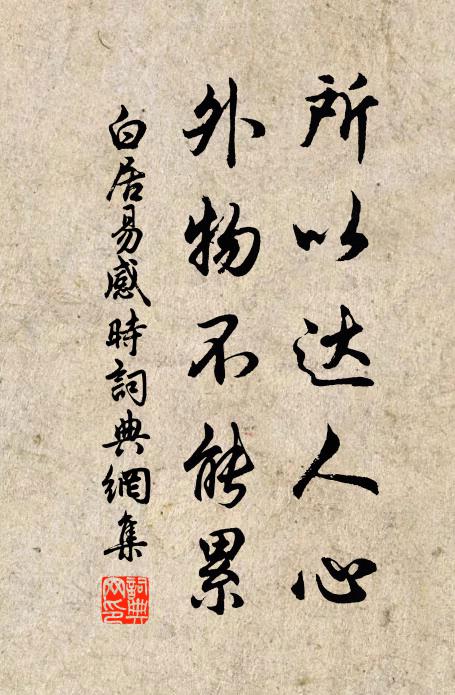 所以达人心
外物不能累
白居易感時詞典網集
詞典
网印